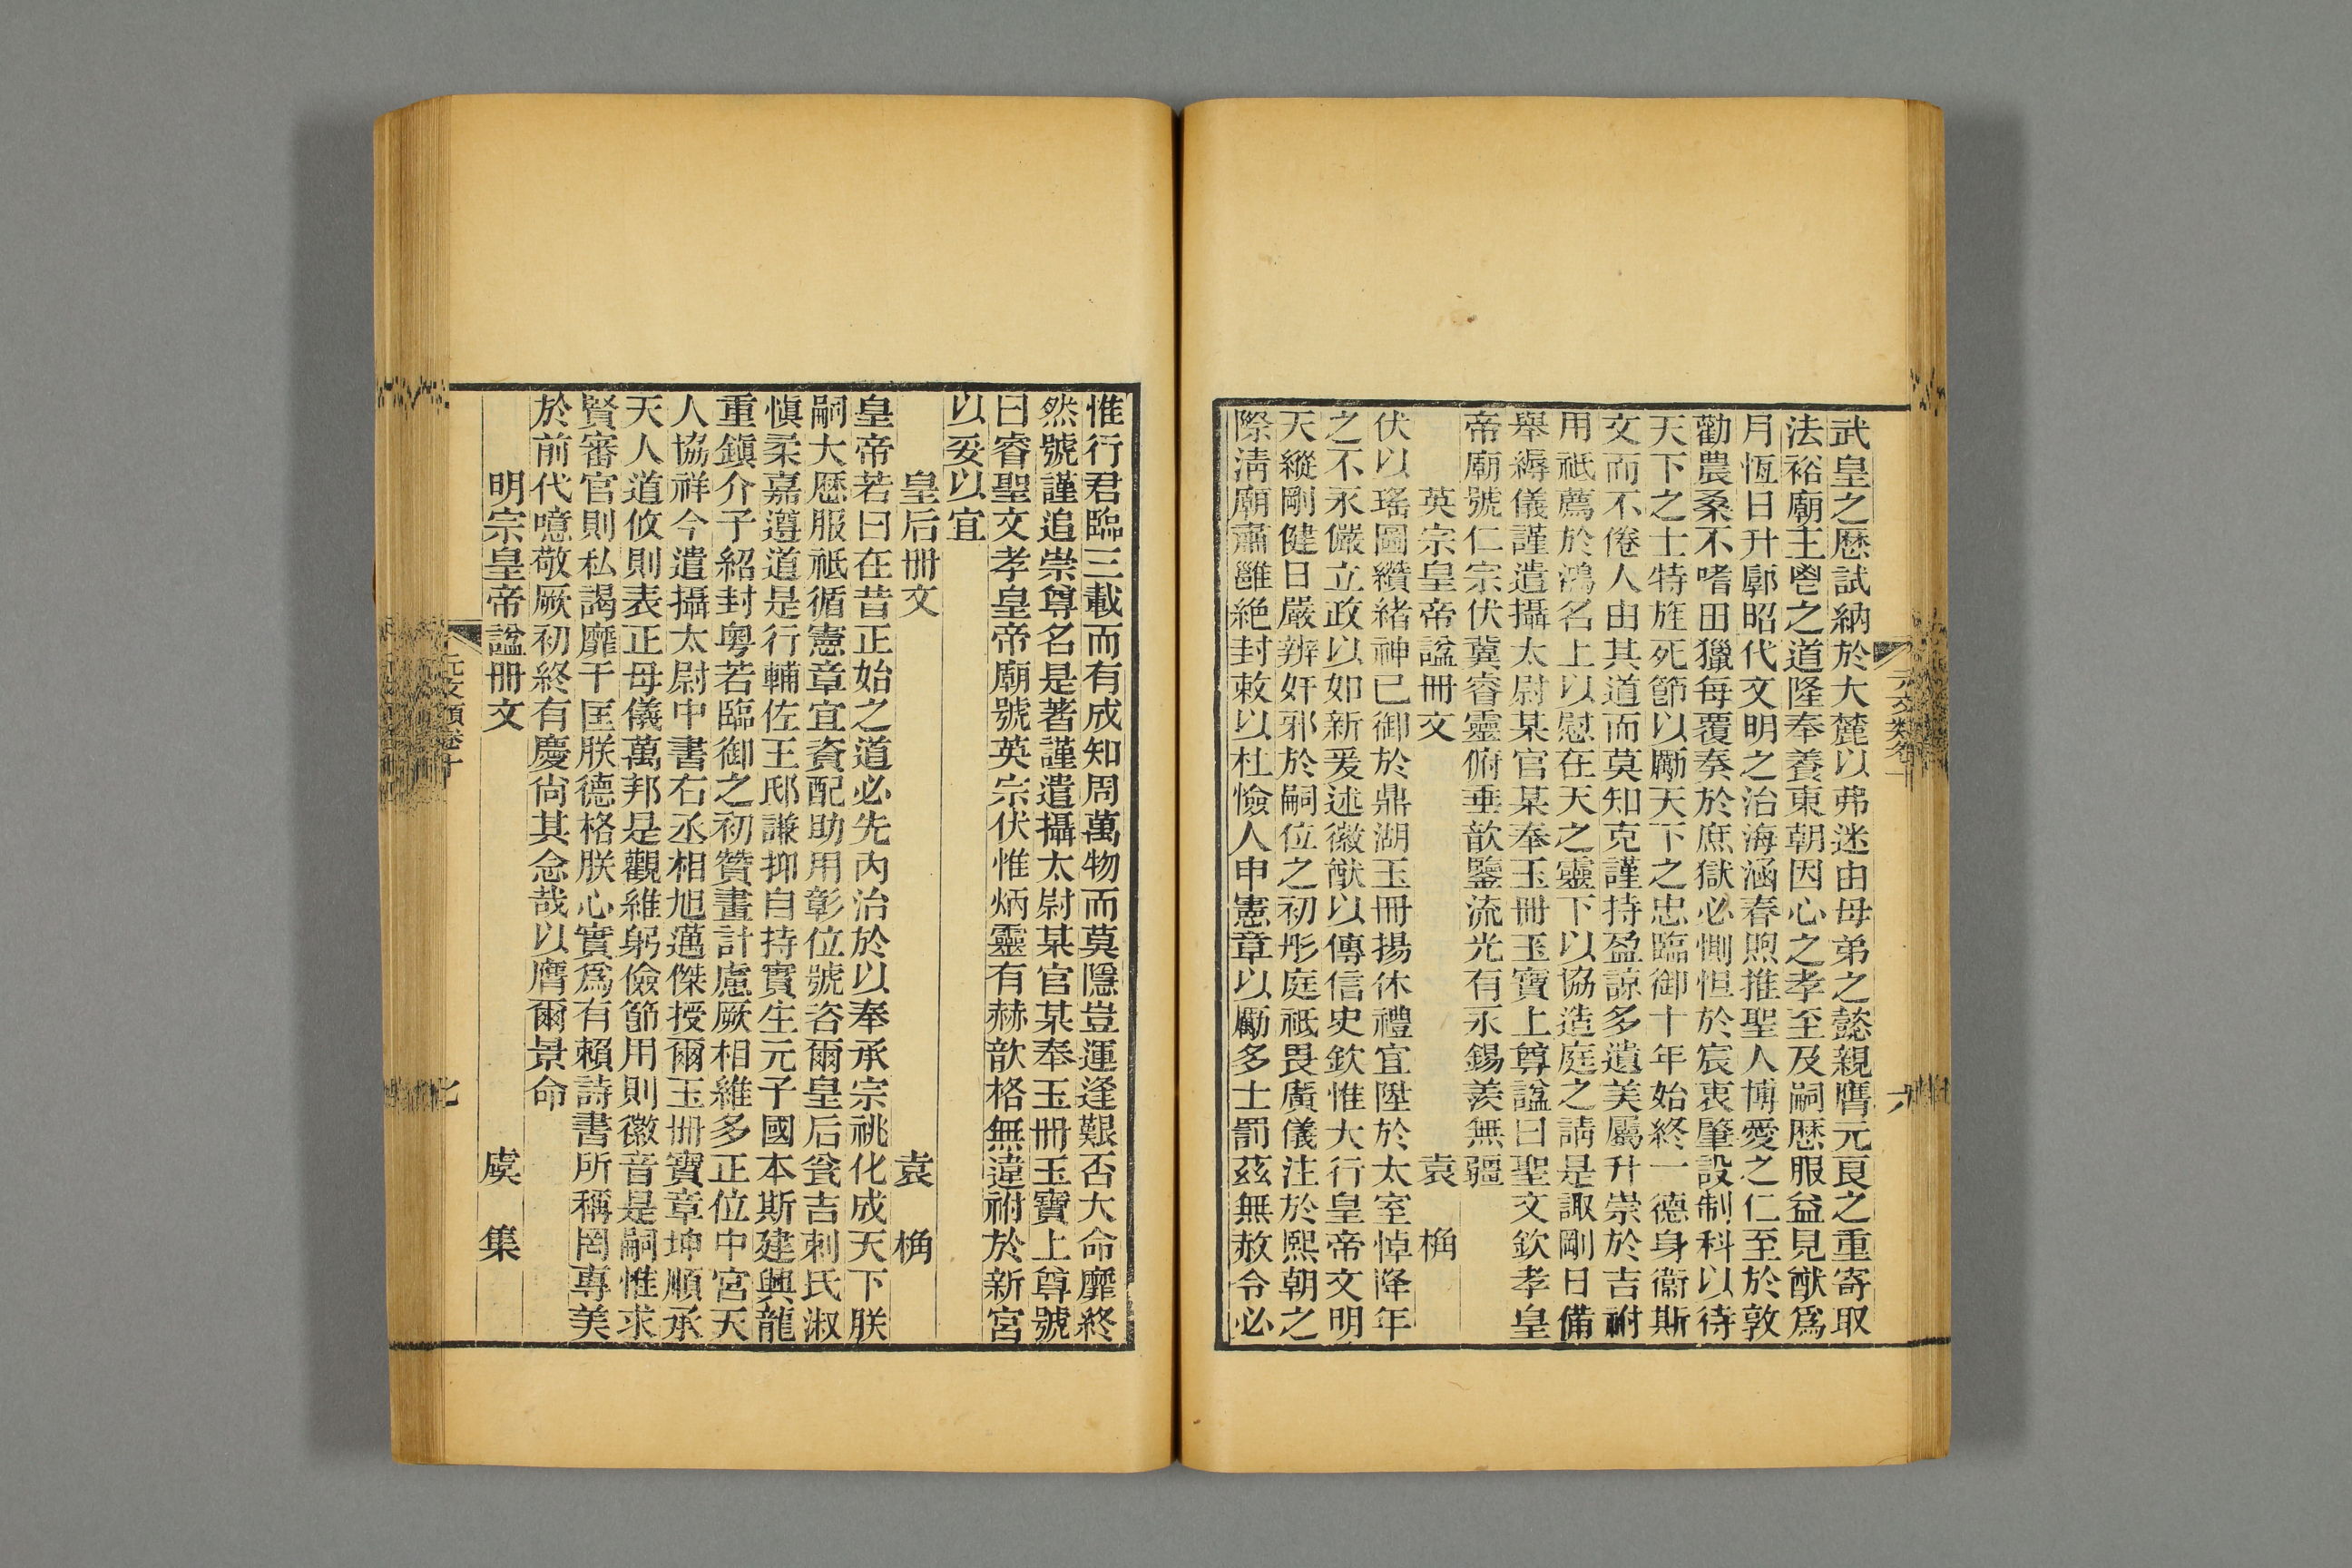 武皇之歷試納於大麓以弗迷由母弟之懿親膺元良之重寄取
法裕廟主鬯之道隆奉養東朝因心之孝至及嗣歷服益見猷爲
月恆日升廓昭代文明之治海涵春煦推聖人博愛之仁至於敦
勸農桑不嗜田獵每覆奏於庶獄必惻怛於宸衷肇設制科以待
天下之士特旌死節以勵天下之忠臨御十年始終一德身衞斯
文而不倦人由其道而莫知克謹持盈諒多遺美屬升崇於吉祔
用祇薦於鴻名上以慰在天之靈下以協造庭之請是諏剛日備
舉縟儀謹遣攝太尉某官某奉玉冊玉寶上尊諡曰聖文欽孝皇
帝廟號仁宗伏冀睿靈俯垂歆鑒流光有永錫羨無疆
英宗皇帝諡冊文 袁 桷
伏以瑤圖纘緒神已御於鼎湖玉冊揚休禮宜陞於太室悼降年
之不永儼立政以如新爰述徽猷以傳信史欽惟大行皇帝文明
天縱剛健日嚴辨奸邪於嗣位之初彤庭祇畏廣儀注於熙朝之
際淸廟肅雝絶封敕以杜憸人申憲章以勵多士罰茲無赦令必
元文類卷十
六
惟行君臨三載而有成知周萬物而莫隱豈運逢艱否大命靡終
然號謹追崇尊名是著謹遣攝太尉某官某奉玉冊玉寶上尊號
曰睿聖文孝皇帝廟號英宗伏惟炳靈有赫歆格無違祔於新宮
以妥以宜
皇后冊文 袁 桷
皇帝若曰在昔正始之道必先內治於以奉承宗祧化成天下朕
嗣大歷服祇循憲章宜資配助用彰位號咨爾皇后瓮吉剌氏淑
愼柔嘉遵道是行輔佐王邸謙抑自持實生元子國本斯建興龍
重鎭介子紹封粵若臨御之初贊畫計慮厥相維多正位中宮天
人協祥今遣攝太尉中書右丞相旭邁傑授爾玉冊寶章坤順承
天人道攸則表正母儀萬邦是觀維躬儉節用則徽音是嗣惟求
賢審官則私謁靡干匡朕德格朕心實爲有賴詩書所稱罔專美
於前代噫敬厥初終有慶尙其念哉以膺爾景命
明宗皇帝諡冊文 虞 集
元文類卷十
七